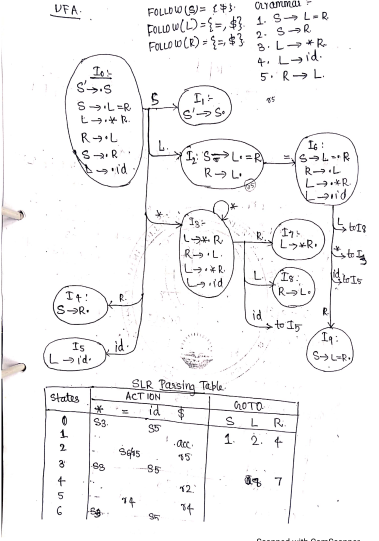 DFA.
FOLLOW(S) = {$}.
FOLLOW(L) = {=, $}
FOLLOW(R) = {=, $}
Grammar :-
1. S → L = R
2. S → R
3. L → *R.
4. L → id.
5. R → L.
I0:-
S' → .S
S → .L=R
L → .*R
R → .L
S → .R
L → .id
S
I1:-
S' → S.
L.
I2: S → L.=R
R → L.
r5
=
I6:
S → L=.R
R → .L
L → .*R.
L → .id
L → to I8
* → to I3
id → to I5
R
I9:
S → L=R.
*
*
I3:-
L → *.R.
R → .L.
L → .*R.
L → .id
R.
I7:-
L → *R.
L
I8:
R → L.
id
→ to I5
R.
I4:
S → R.
id.
I5
L → id.
SLR Parsing Table.
States ACTION GOTO
* = id $ S L R.
0 S3. S5 1. 2. 4
1 .acc.
2 S6/r5 r5
3 S3 S5 8 7
4 r2.
5 r4 r4
6 S3 S5
Scanned with CamScanner